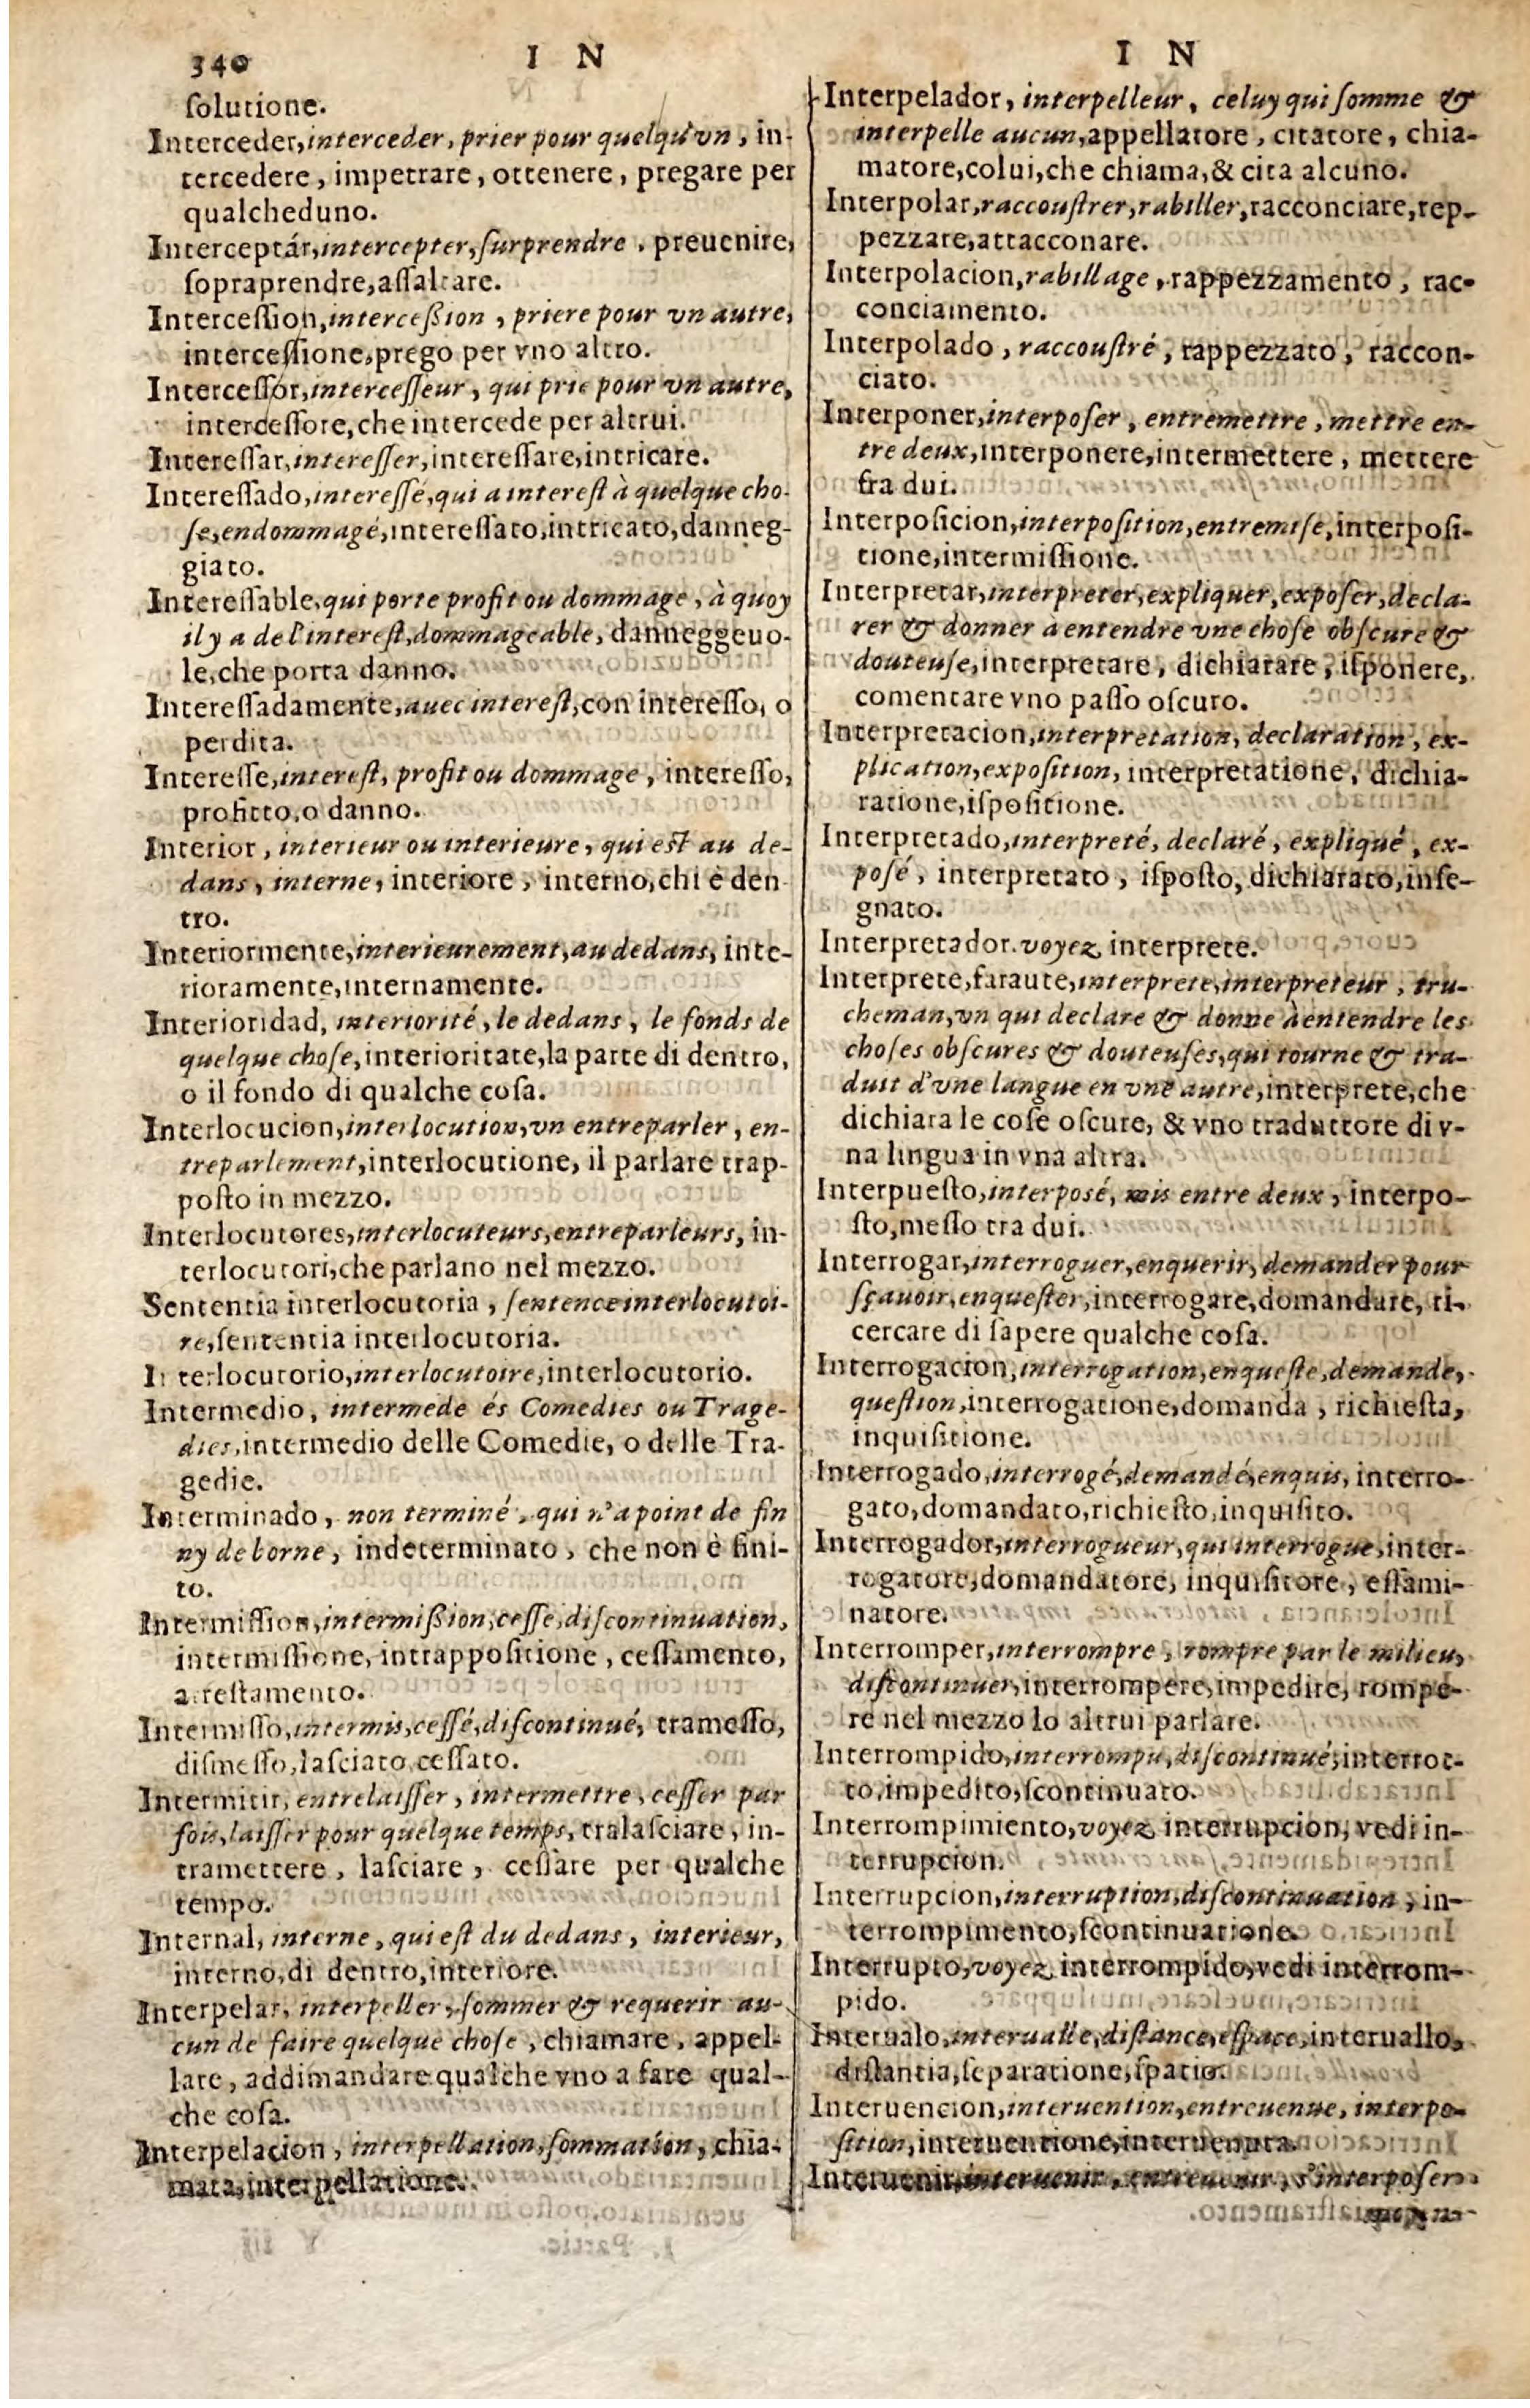 340
I N
ſolutione.
Interceder, interceder, prier pour quelqu'vn, in-
tercedere, impetrare, ottenere, pregare per
qualcheduno.
Interceptár, intercepter, ſurprendre, preuenire,
ſopraprendre, aſſaltare.
Interceſſion, interceßion, priere pour vn autre,
interceſſione, prego per vno altro.
Interceſſor, interceſſeur, qui prie pour vn autre,
interceſſore, che intercede per altrui.
Intereſſar, intereſſer, intereſſare, intricare.
Intereſſado, intereſſé, qui a intereſt à quelque cho-
ſe, endommagé, intereſſato, intricato, danneg-
giato.
Intereſſable, qui porte profit ou dommage, à quoy
il y a de l'intereſt, dommageable, danneggeuo-
le, che porta danno.
Intereſſadamente, auec intereſt, con intereſſo, o
perdita.
Intereſſe, intereſt, profit ou dommage, intereſſo,
profitto, o danno.
Interior, interieur ou interieure, qui eſt au de-
dans, interne, interiore, interno, chi è den
tro.
Interiormente, interieurement, au dedans, inte-
rioramente, internamente.
Interioridad, interiorité, le dedans, le fonds de
quelque choſe, interioritate, la parte di dentro,
o il fondo di qualche coſa.
Interlocucion, interlocution, vn entreparler, en-
treparlement, interlocutione, il parlare trap-
poſto in mezzo.
Interlocutores, interlocuteurs, entreparleurs, in-
terlocutori, che parlano nel mezzo.
Sententia interlocutoria, ſentence interlocutoi-
re, ſententia interlocutoria.
Interlocutorio, interlocutoire, interlocutorio.
Intermedio, intermede és Comedies ou Trage-
dies, intermedio delle Comedie, o delle Tra-
gedie.
Interminado, non terminé, qui n'a point de fin
ny de borne, indeterminato, che non è fini-
to.
Intermiſſion, intermißion, ceſſe, diſcontinuation,
intermiſſione, intrappoſitione, ceſſamento,
arreſtamento.
Intermiſſo, intermis, ceſſé, diſcontinué, trameſſo,
diſmeſſo, laſciato, ceſſato.
Intermitir, entrelaiſſer, intermettre, ceſſer par
fois, laiſſer pour quelque temps, tralaſciare, in-
tramettere, laſciare, ceſſare per qualche
tempo.
Internal, interne, qui eſt du dedans, interieur,
interno, di dentro, interiore.
Interpelar, interpeller, ſommer & requerir au-
cun de faire quelque choſe, chiamare, appel-
lare, addimandare qualche vno a fare qual-
che coſa.
Interpelacion, interpellation, ſommation, chia-
mata, interpellatione.
I N
Interpelador, interpelleur, celuy qui ſomme &
interpelle aucun, appellatore, citatore, chia-
matore, colui, che chiama, & cita alcuno.
Interpolar, raccouſtrer, rabiller, racconciare, rep-
pezzare, attacconare.
Interpolacion, rabillage, rappezzamento, rac-
conciamento.
Interpolado, raccouſtré, rappezzato, raccon-
ciato.
Interponer, interpoſer, entremettre, mettre en-
tre deux, interponere, intermettere, mettere
fra dui.
Interpoſicion, interpoſition, entremiſe, interpoſi-
tione, intermiſſione.
Interpretar, interpreter, expliquer, expoſer, decla-
rer & donner à entendre vne choſe obſcure &
douteuſe, interpretare, dichiarare, iſponere,
comentare vno paſſo oſcuro.
Interpretacion, interpretation, declaration, ex-
plication, expoſition, interpretatione, dichia-
ratione, iſpoſitione.
Interpretado, interpreté, declaré, expliqué, ex-
poſé, interpretato, iſpoſto, dichiarato, inſe-
gnato.
Interpretador. voyez interprete.
Interprete, faraute, interprete, interpreteur, tru-
cheman, vn qui declare & donne à entendre les
choſes obſcures & douteuſes, qui tourne & tra-
duit d'vne langue en vne autre, interprete, che
dichiara le coſe oſcure, & vno traduttore di v-
na lingua in vna altra.
Interpueſto, interpoſé, mis entre deux, interpo-
ſto, meſſo tra dui.
Interrogar, interroguer, enquerir, demander pour
ſçauoir, enqueſter, interrogare, domandare, ri-
cercare di ſapere qualche coſa.
Interrogacion, interrogation, enqueſte, demande,
queſtion, interrogatione, domanda, richieſta,
inquiſitione.
Interrogado, interrogé, demandé, enquis, interro-
gato, domandato, richieſto, inquiſito.
Interrogador, interrogueur, qui interrogue, inter-
rogatore, domandatore, inquiſitore, eſſami-
natore.
Interromper, interrompre, rompre par le milieu,
diſcontinuer, interrompere, impedire, rompe-
re nel mezzo lo altrui parlare.
Interrompido, interrompu, diſcontinué, interrot-
to, impedito, ſcontinuato.
Interrompimiento, voyez interrupcion, vedi in-
terrupcion.
Interrupcion, interruption, diſcontinuation, in-
terrompimento, ſcontinuatione.
Interrupto, voyez interrompido, vedi interrom-
pido.
Interualo, interualle, diſtance, eſpace, interuallo,
diſtantia, ſeparatione, ſpatio.
Interuencion, interuention, entreuenue, interpo-
ſition, interuentione, interuenuta.
Interuenir, interuenir, entreuenir, s'interpoſer